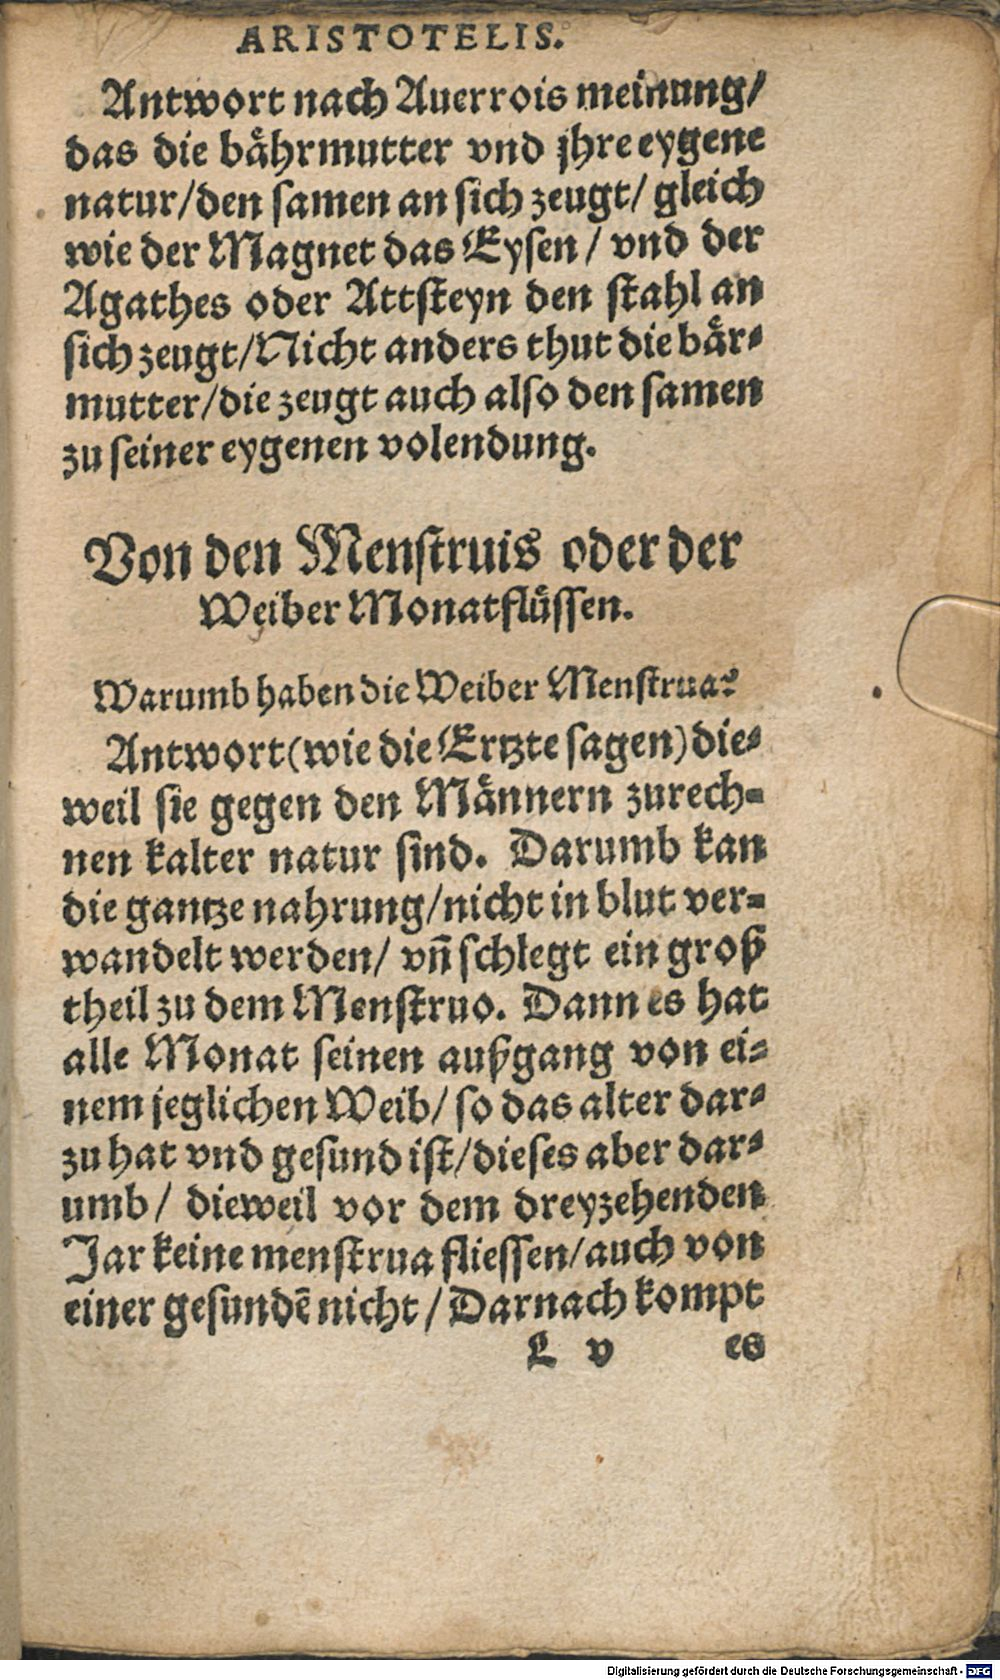 ARISTOTELIS.
Antwort nach Auerrois meinung/
das die bährmutter vnd jhre eygene
natur/den samen an sich zeugt/ gleich
wie der Magnet das Eysen / vnd der
Agathes oder Attsteyn den stahl an
sich zeugt/Nicht anders thut die bär-
mutter/die zeugt auch also den samen
zu seiner eygenen volendung.
Von den Menstruis oder der
Weiber Monatflüssen.
Warumb haben die Weiber Menstrua?
Antwort(wie die Ertzte sagen)die-
weil sie gegen den Männern zurech-
nen kalter natur sind. Darumb kan
die gantze nahrung/nicht in blut ver-
wandelt werden/ vn̄ schlegt ein groß
theil zu dem Menstruo. Dann es hat
alle Monat seinen außgang von ei-
nem jeglichen Weib/ so das alter dar-
zu hat vnd gesund ist/dieses aber dar-
umb/ dieweil vor dem dreyzehenden
Jar keine menstrua fliessen/auch von
einer gesundē nicht/Darnach kompt
L v es
Digitalisierung gefördert durch die Deutsche Forschungsgemeinschaft - DFG